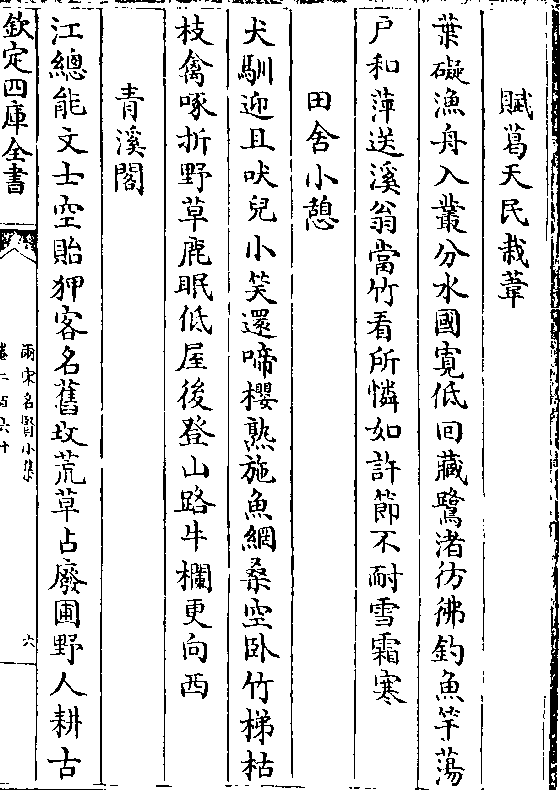 賦葛天民栽葦
葉礙漁舟入叢分水國寛低回藏鷺渚彷彿釣魚竿蕩
户和萍送溪翁當竹看所憐如許節不耐雪霜寒
田舍小憩
犬馴迎且吠兒小笑還啼櫻熟施魚網桑空卧竹梯枯
枝禽啄折野草鹿眠低屋後登山路牛欄更向西
青溪閣
江總能文士空貽狎客名舊坟荒草占廢圃野人耕古
欽定四庫全書
兩宋名賢小集
卷二百六十
六